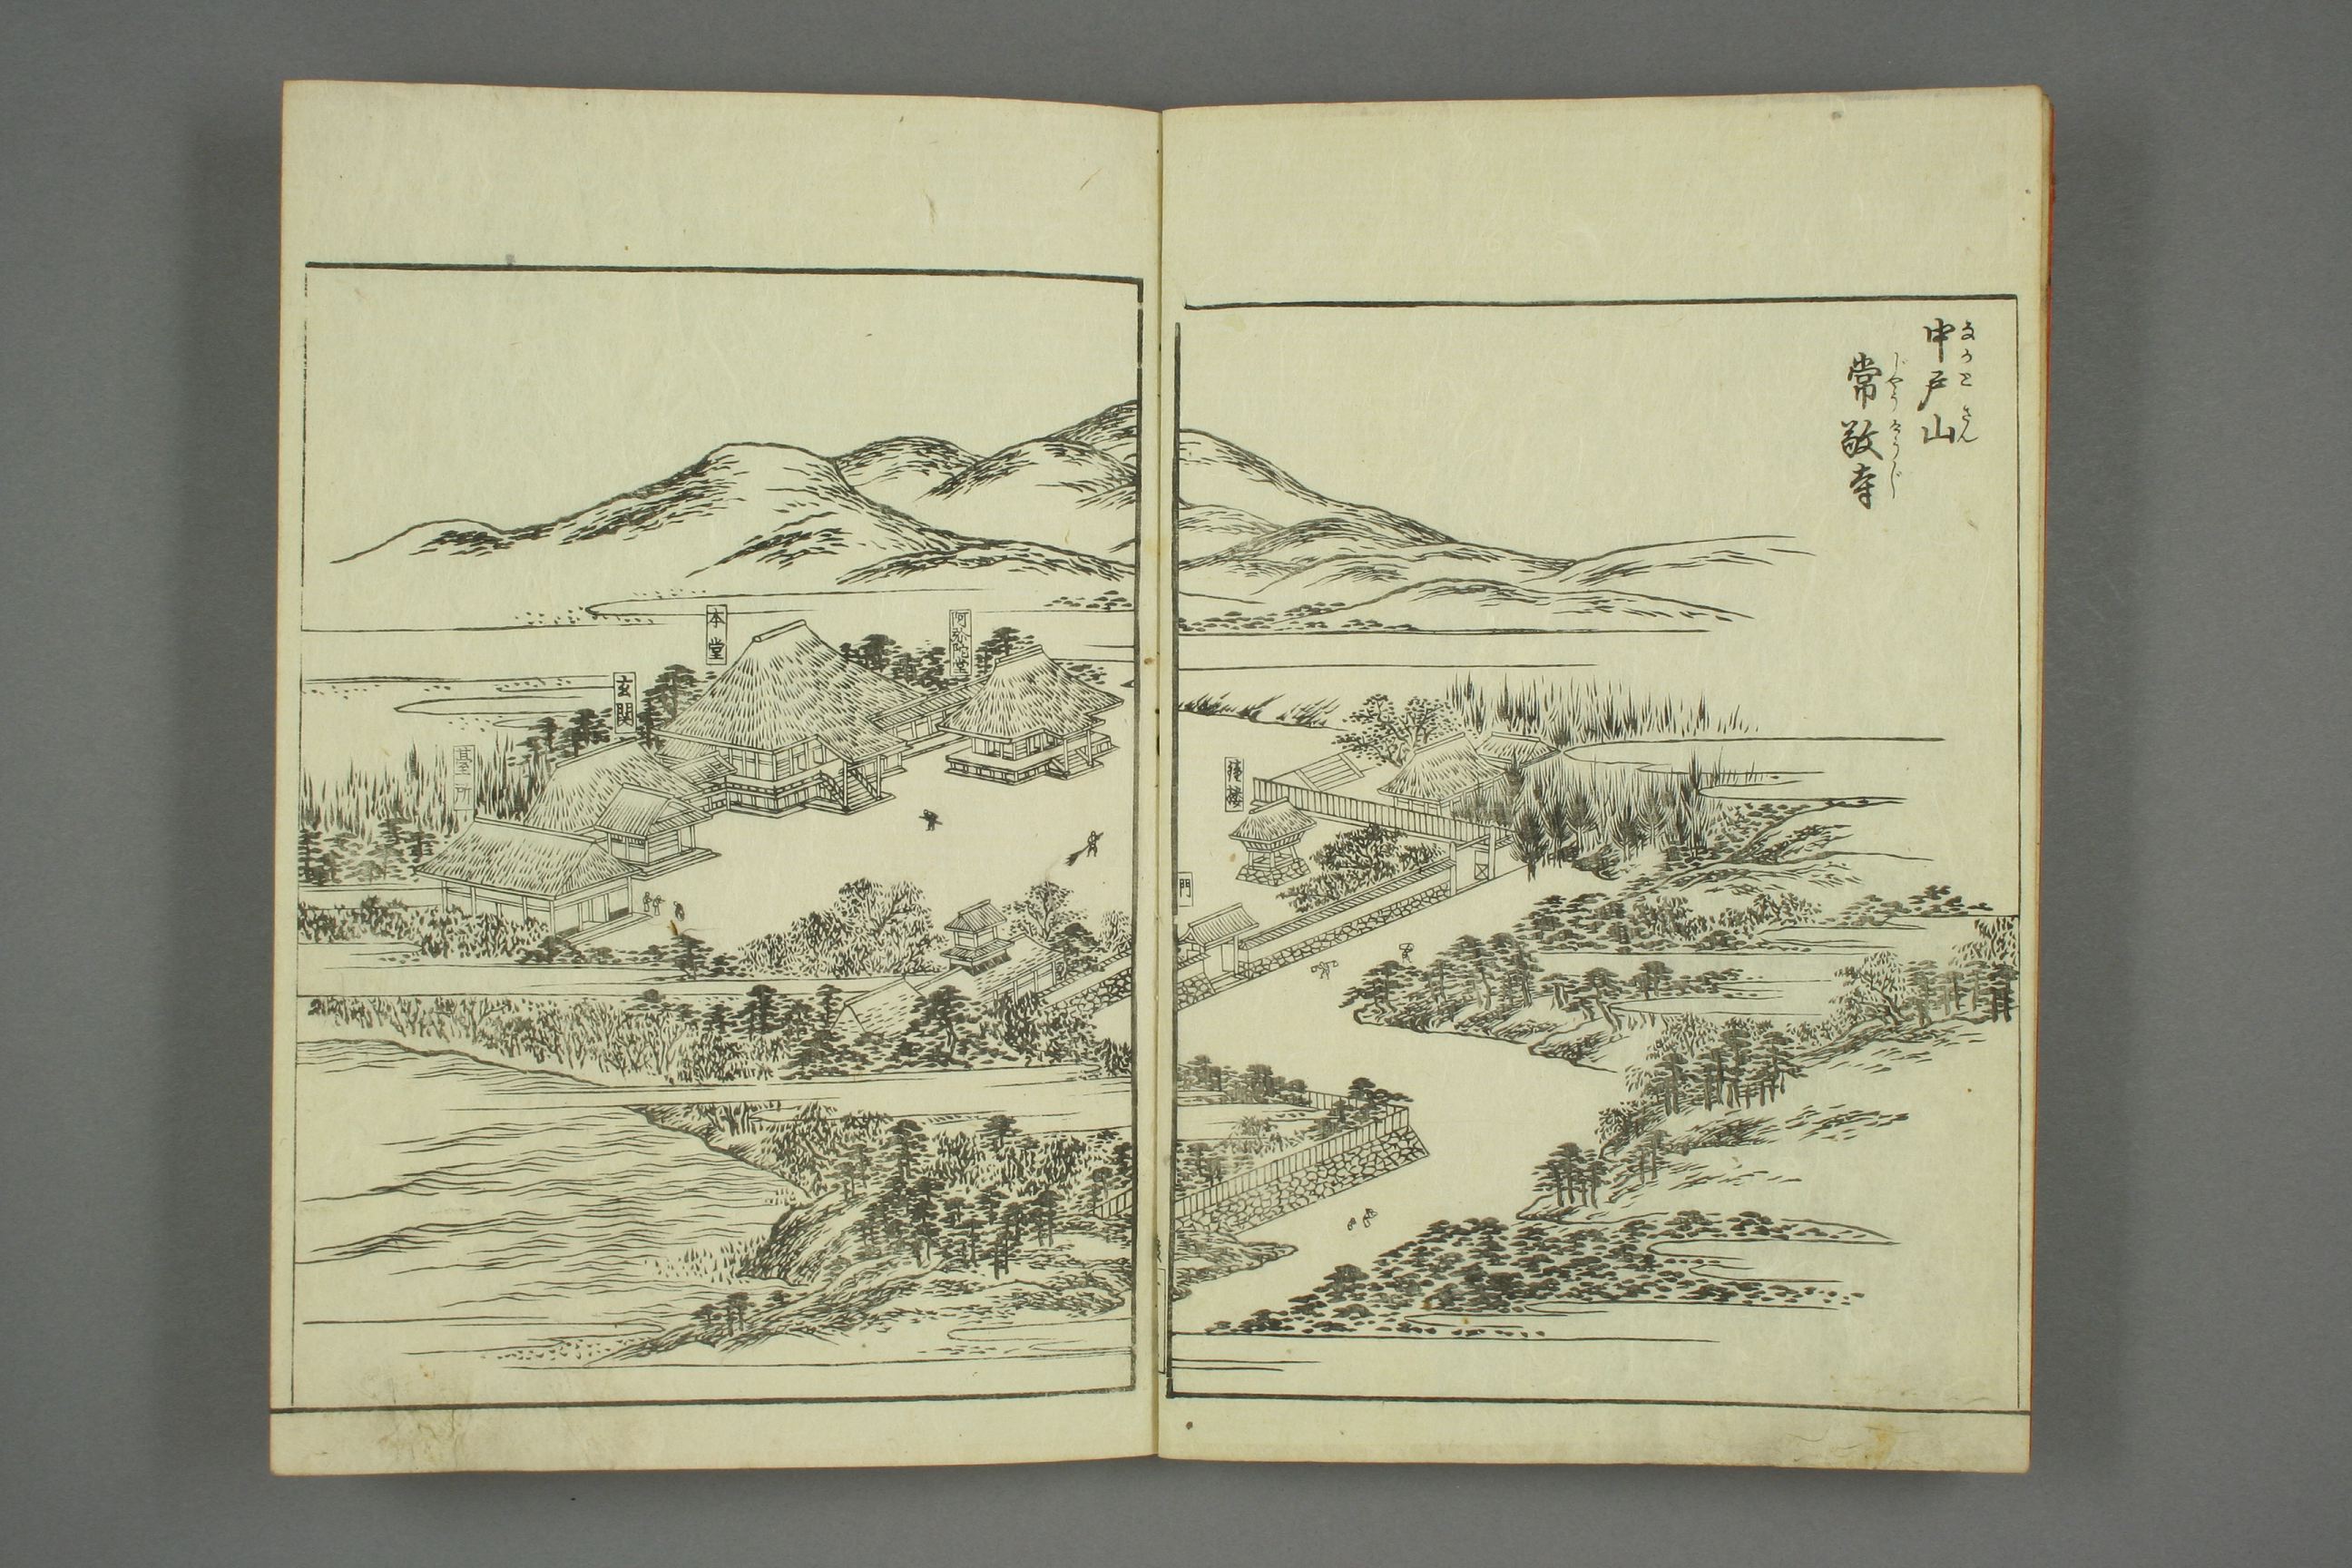 中戸山
なかとさん
常敬寺
じやうきうじ
鐘楼
門
阿弥陀堂
本堂
玄関
台所